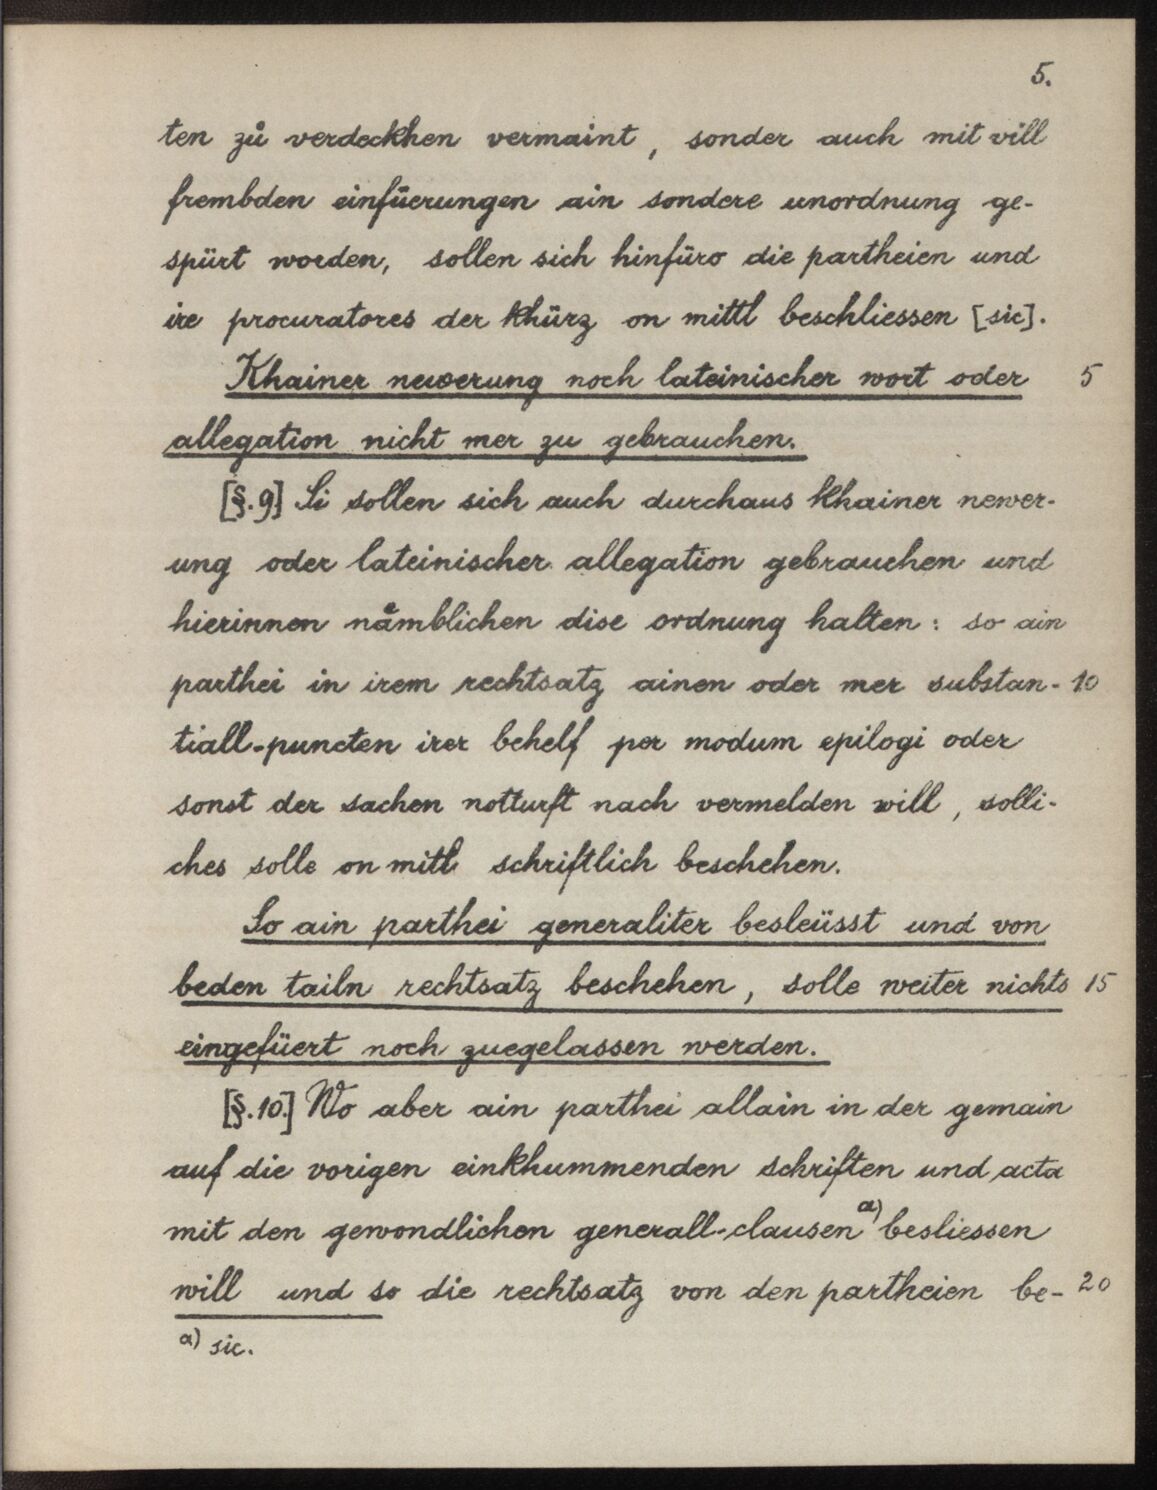 5.
ten zů verdeckhen vermaint, sonder auch mit vill
frembden einfüerungen ain sondere unordnung ge-
spürt worden, sollen sich hinfüro die partheien und
ire procuratores der khürz on mittl beschliessen [sic].
Khainer newerung noch lateinischer wort oder 5
allegation nicht mer zu gebrauchen.
[§.9] Si sollen sich auch durchaus khainer newer-
ung oder lateinischer allegation gebrauchen und
hierinnen nåmblichen dise ordnung halten: so ain
parthei in irem rechtsatz ainen oder mer substan- 10
tiall-puncten irer behelf per modum epilogi oder
sonst der sachen notturft nach vermelden will, solli-
ches solle on mitl schriftlich beschehen.
So ain parthei generaliter besleüsst und von
beden tailn rechtsatz beschehen, solle weiter nichts 15
eingefüert noch zuegelassen werden.
[§.10.] Wo aber ain parthei allain in der gemain
auf die vorigen einkhummenden schriften und acta
mit den gewondlichen generall-clausen a) besliessen
will und so die rechtsatz von den partheien be- 20
a) sic.